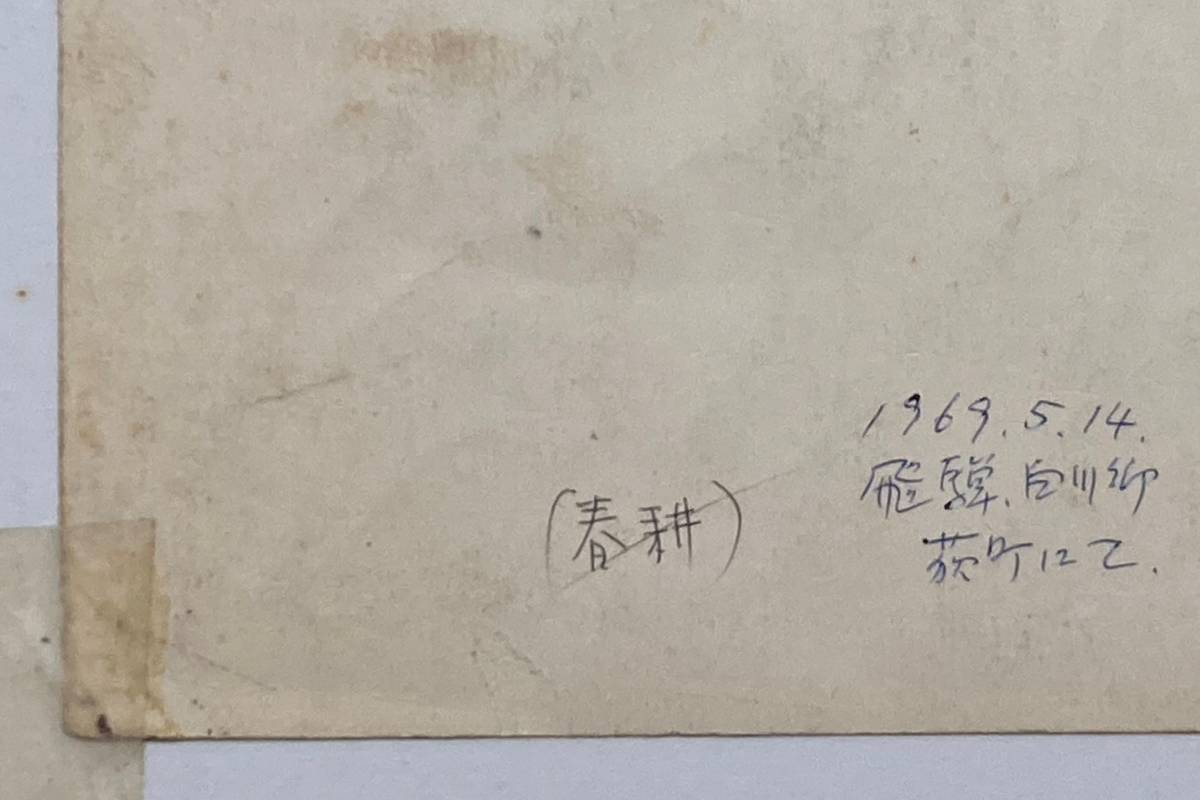 1969.5.14.
飛騨.白川郷
荻町にて.
(春耕)